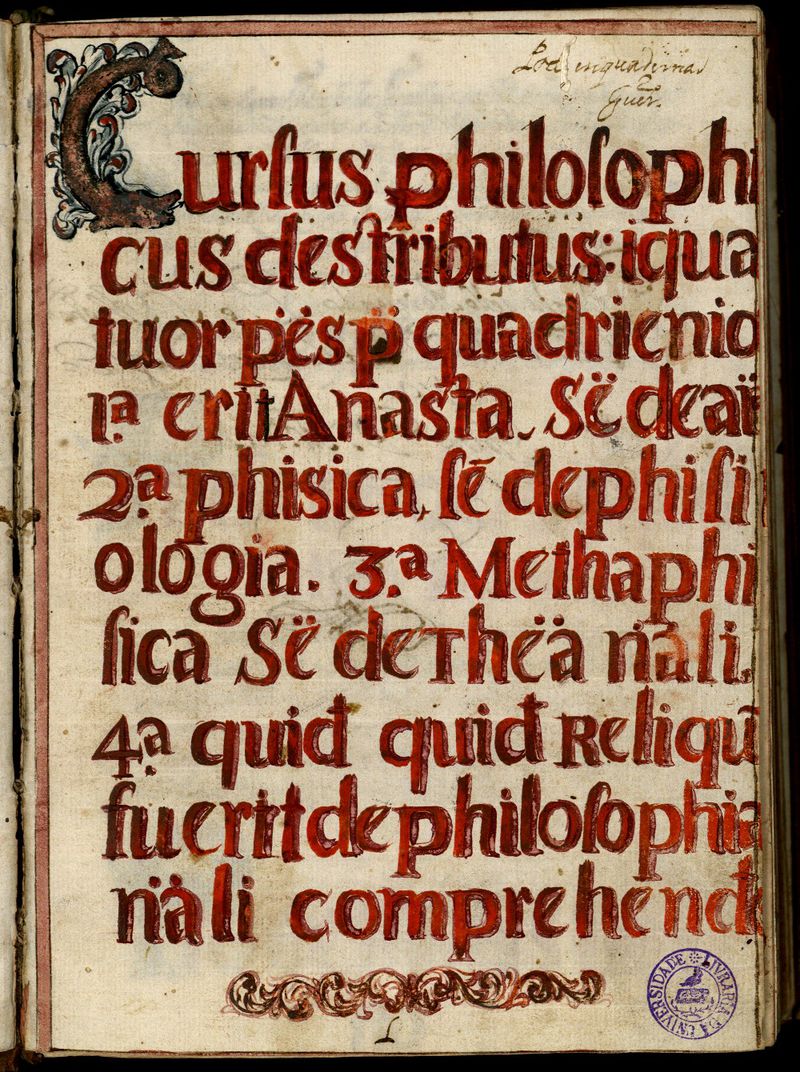 Guer.
Cursus philosophi
cus destributus: iqua
tuor p̈ës p̈ quadrienio
1ª erit Anasta. Së deai
2ª phisica, sẽ de phisi
ologia. 3.ª Methaphi
sica Së de Thëä näli.
4.ª quid quid Reliqũ
fuerit de philosophia
näli comprehend
UNIVERSIDADE ✻ LIVRARIA DA